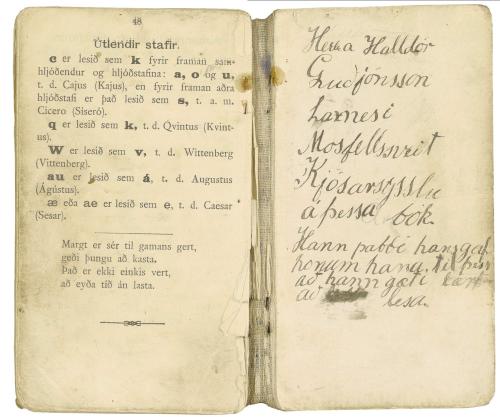 48
Útlendir stafir.
c er lesið sem k fyrir framan sam-
hljóðendur og hljóðstafina: a, o og u,
t. d. Cajus (Kajus), en fyrir framan aðra
hljóðstafi er það lesið sem s, t. a. m.
Cicero (Síseró).
q er lesið sem k, t. d. Qvintus (Kvint-
us).
W er lesið sem v, t. d. Wittenberg
(Vittenberg).
au er lesið sem á, t. d. Augustus
(Ágústus).
æ eða ae er lesið sem e, t. d. Caesar
(Sesar).
Margt er sér til gamans gert,
geði þungu að kasta.
Það er ekki einkis vert,
að eyða tíð án lasta.
Herra Halldór
Guðjónsson
Laxnesi
Mosfellssveit
Kjósarsysslu
á þessa bók.
Hann pabbi hans gaf
honum hana til þess
að hann gæti lært
að lesa.